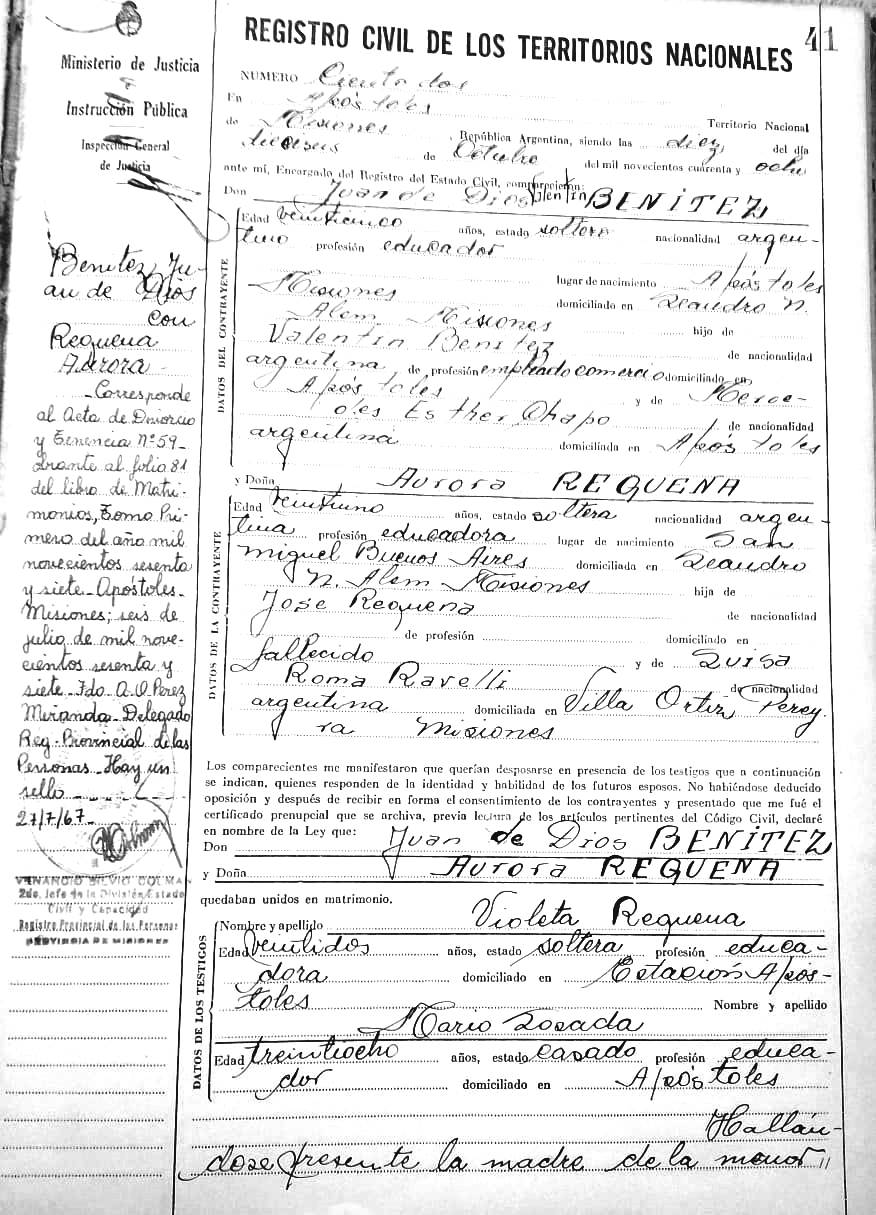 41
REGISTRO CIVIL DE LOS TERRITORIOS NACIONALES
Ministerio de Justicia
é
Instrucción Pública
Inspección General
de Justicia
NUMERO Ciento dos
En Apóstoles Territorio Nacional
de Misiones, República Argentina, siendo las diez del día
dieciseis de Octubre del mil novecientos cuarenta y ocho
ante mí, Encargado del Registro del Estado Civil, comparecieron:
Don Juan de Dios Valentín BENÍTEZ
DATOS DEL CONTRAYENTE
Edad veinticinco años, estado soltero nacionalidad argen-
tino profesión educador
lugar de nacimiento Apóstoles
Misiones domiciliado en Leandro N.
Alem Misiones hijo de
Valentín Benítez de nacionalidad
argentina, de profesión empleado comercio domiciliado en
Apóstoles y de Merce-
des Esther Chapo de nacionalidad
argentina domiciliada en Apóstoles
y Doña Aurora REQUENA
DATOS DE LA CONTRAYENTE
Edad veintiuno años, estado soltera nacionalidad argen-
tina profesión educadora lugar de nacimiento San
Miguel Buenos Aires domiciliada en Leandro
N. Alem Misiones hija de
José Requena de nacionalidad
de profesión domiciliado en
fallecido y de Luisa
Roma Ravelli de nacionalidad
argentina domiciliada en Villa Ortiz Perey
ra Misiones
Los comparecientes me manifestaron que querían desposarse en presencia de los testigos que a continuación
se indican, quienes responden de la identidad y habilidad de los futuros esposos. No habiéndose deducido
oposición y después de recibir en forma el consentimiento de los contrayentes y presentado que me fué el
certificado prenupcial que se archiva, previa lectura de los artículos pertinentes del Código Civil, declaré
en nombre de la Ley que:
Don Juan de Dios BENÍTEZ
y Doña Aurora REQUENA
quedaban unidos en matrimonio.
DATOS DE LOS TESTIGOS
Nombre y apellido Violeta Requena
Edad veintidos años, estado soltera profesión educa-
dora domiciliado en Estación Após-
toles Nombre y apellido
Mario Losada
Edad treintiocho años, estado casado profesión educa-
dor domiciliado en Apóstoles
Hallán-
dose presente la madre de la menor //
Benítez, Ju-
an de Dios
con
Requena
Aurora -
Corresponde
al Acta de Divorcio
y Tenencia Nº 59-
obrante al folio 81
del libro de Matri-
monios, Tomo Pri-
mero del año mil
novecientos sesenta
y siete - Apóstoles-
Misiones; seis de
julio de mil nove-
cientos sesenta y
siete - Fdo. A. O. Perez
Miranda - Delegado
Reg. Provincial de las
Personas - Hay un
sello
27/7/67
VENANCIO SILVIO DOLMAN
2do. Jefe de la División Estado
Civil y Capacidad
Registro Provincial de las Personas
PROVINCIA DE MISIONES